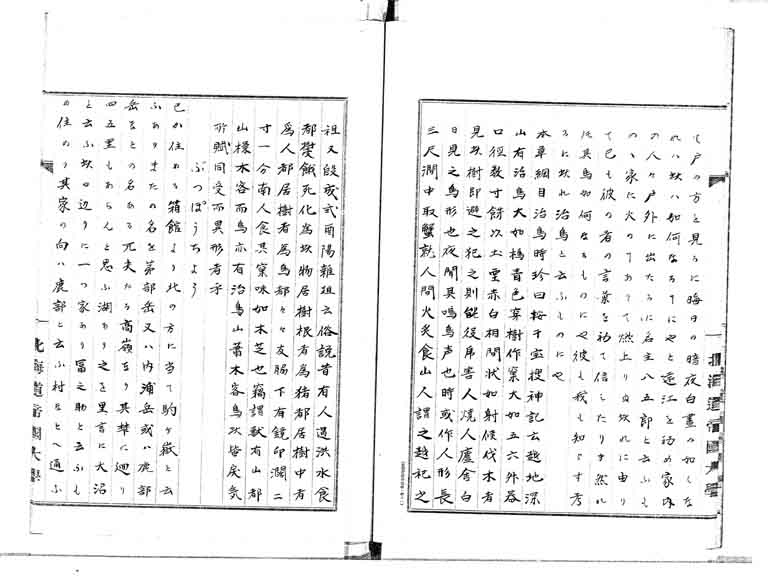 て戸の方を見るに晦日の暗夜白晝の如くな
れハ坎ハ如何なる
の人々戸外に出たるに名主八五郎と云ふも
のゝ家に火の燃上り
て已も彼の者の言葉を初て信したりき然れ
は其鳥如何なるものにや彼も我も知らす考
るに坎れ治鳥と云ふものにや
本草綱目治鳥時珍曰按干宝搜神記云越地深
山有治鳥大如鳩青色穿樹作窠大如五六升器
口徑數寸餙以土堊赤白相間状如射候伐木者
見坎樹即避之犯之則能役虎害人燒人廬舎白
日見之鳥形也夜聞其鳴鳥声也時或作人形長
三尺澗中取蟹就人間火炙食山人謂之越祀之
祖又段成式酉陽雜俎云俗説昔有人遇洪水食
都樹餓死化為坎物居樹根者為猪都居樹中者
為人都居樹者為鳥都々々左腋下有鏡印濶二
寸一分南人食其窠味如木芝也竊謂獣有山都
山𤢖木客而鳥亦有治鳥山蕭木客鳥坎皆戾氣
所賦同受而異形者乎
ぶつぽうちよう
己か住める箱館より北の方に当て駒ケ嶽と云
ふありまたの名を茅部岳又ハ内浦岳或ハ鹿部
岳なとの名ある兀夫たる高嶺あり其㐮に廻り
四五里もあらんと思ふ湖あり之を里言に大沼
と云ふ坎の辺りに一つ家あり冨之助と云ふも
の住めり其家の向ハ鹿部と云ふ村なとへ通ふ
北海道帝國大學
北海道帝國大學